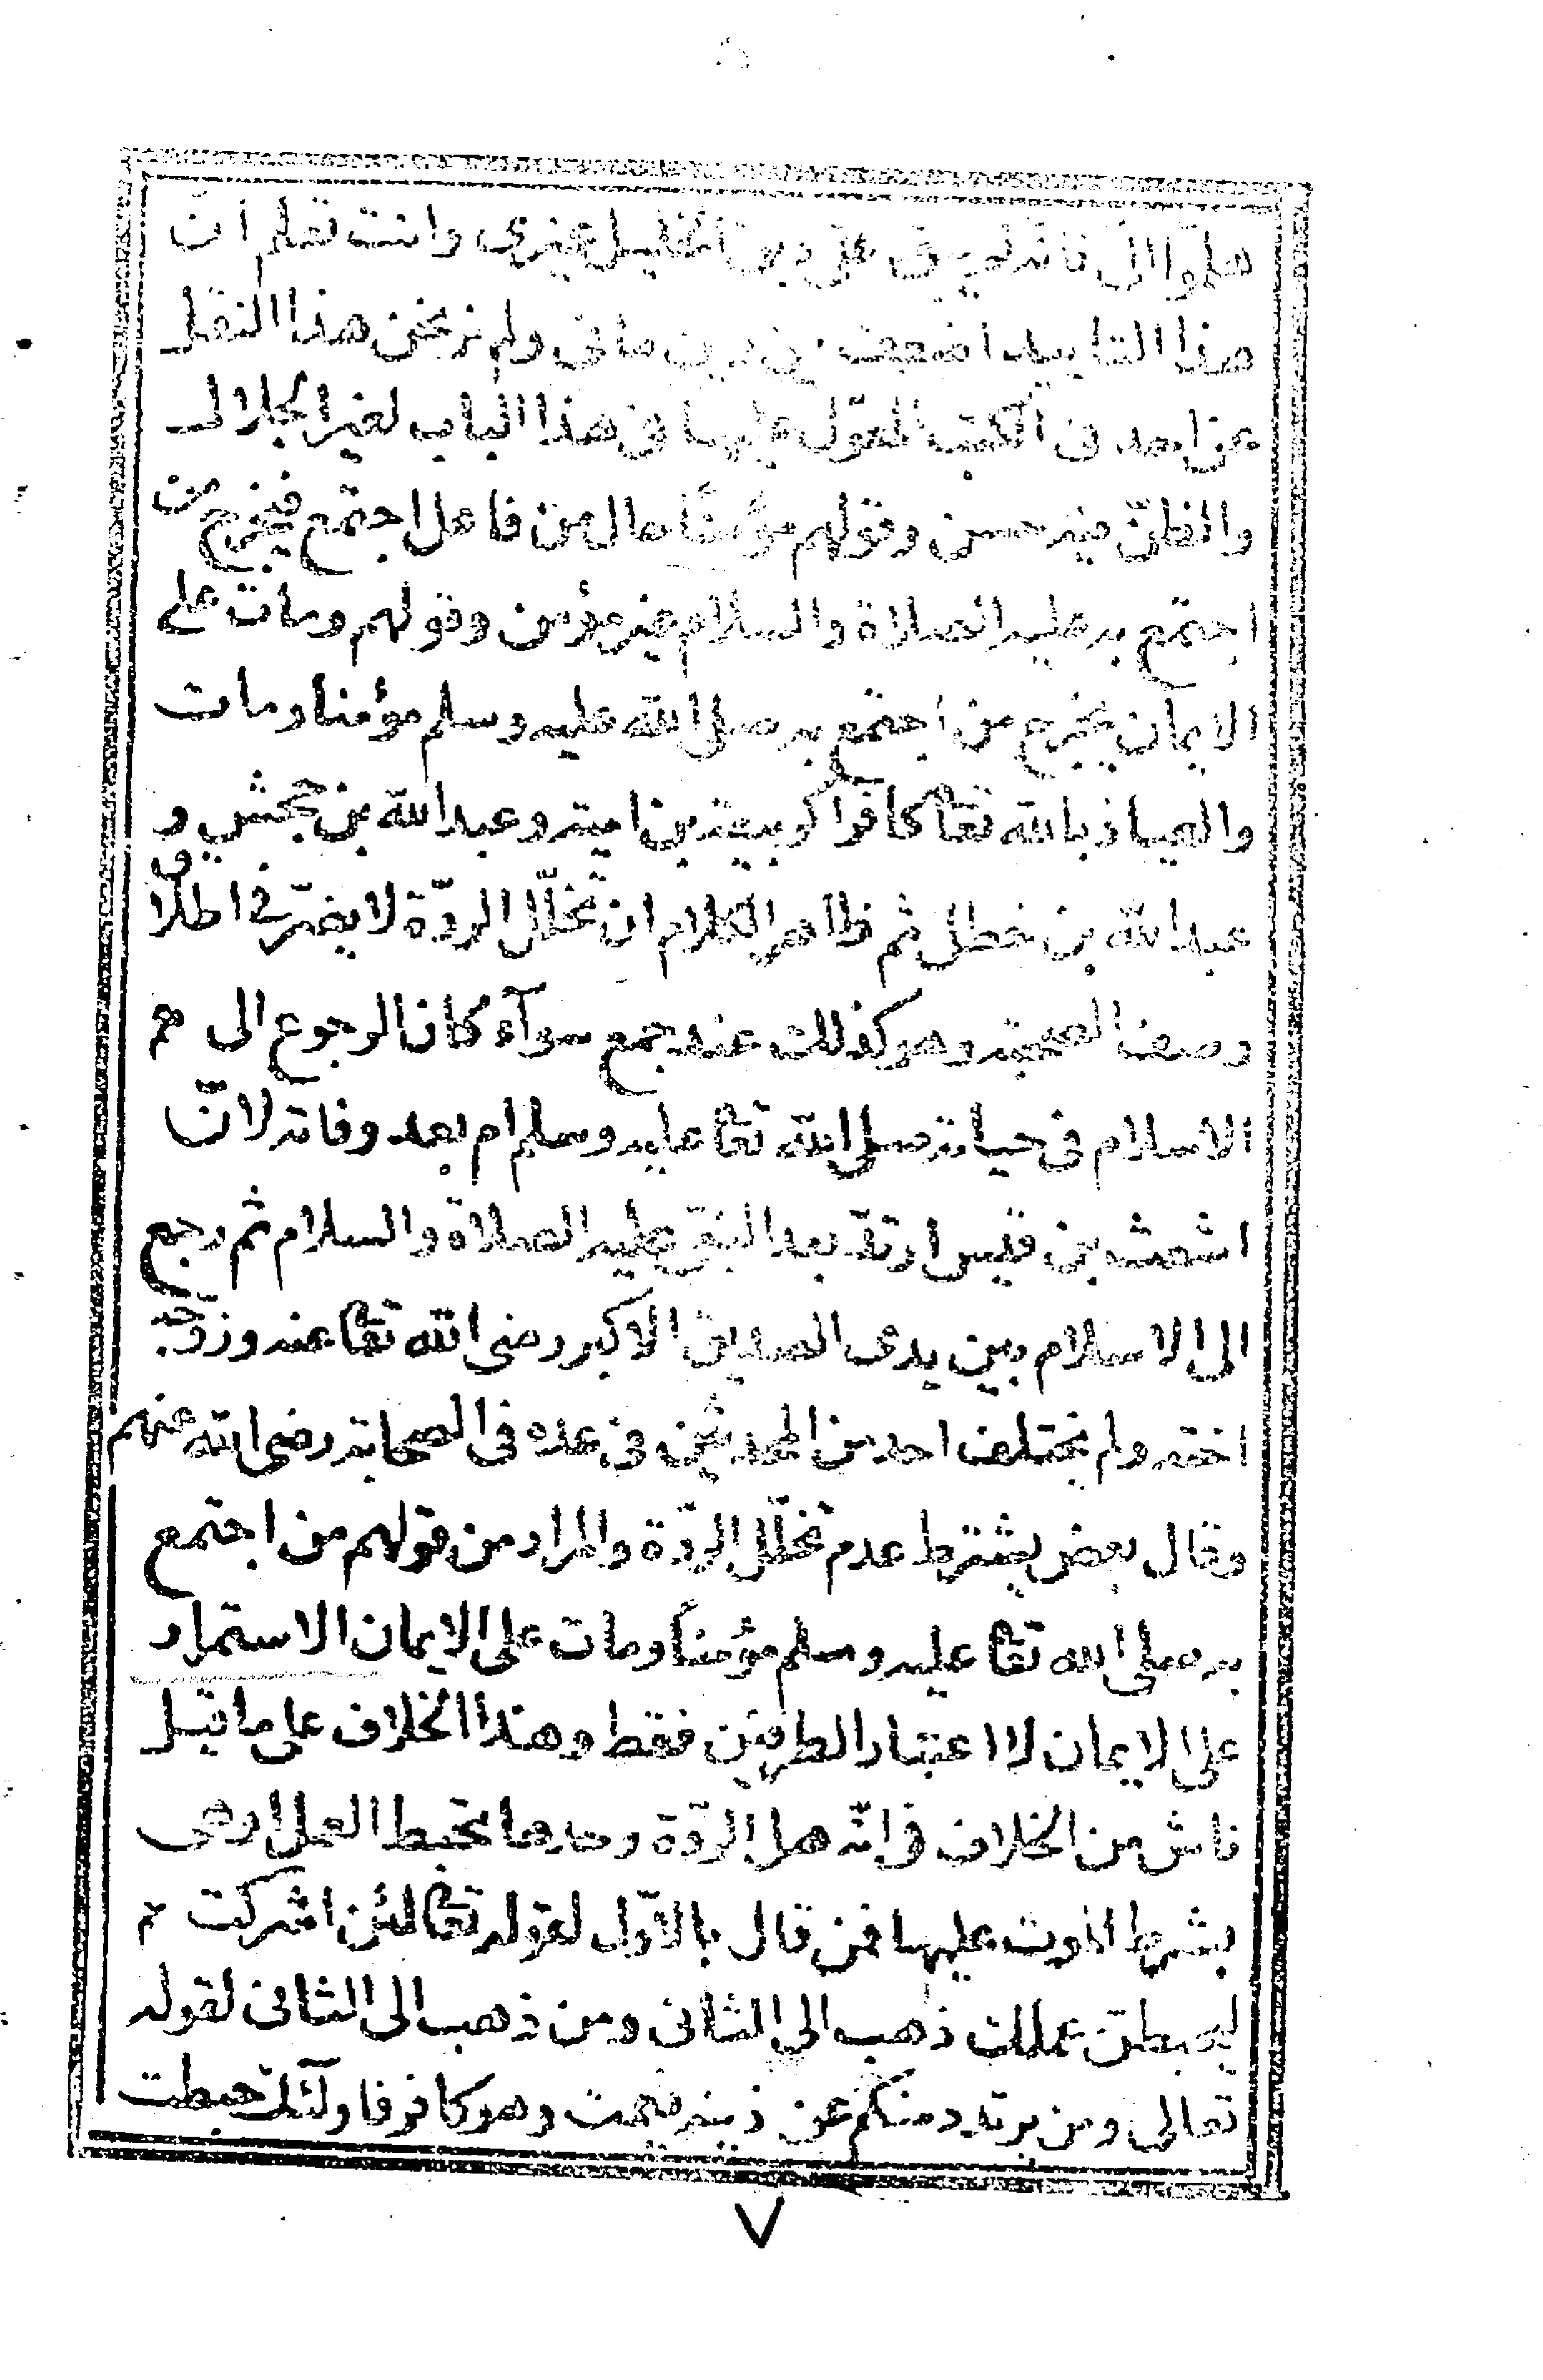 هلموا الىّ فانه لم يبق على دين الخليل غيرى وانت تعلم ان
هذا التاييد اضعف من دين مانى ولم نر نحن هذا النقل
عن احد فى الكتب المعوّل عليها فى هذا الباب لغير الجلال
والظنّ فيه حسن وقولهم مؤمنًا حال من فاعل اجتمع فيخرج من
اجتمع به عليه الصلاة والسلام غير مؤمن وقولهم ومات على
الايمان يخرج من اجتمع به صلى الله عليه وسلم مؤمنا ومات
والعياذ بالله تعا كافرا كربيعة بن امية وعبد الله بن جحش و
عبد الله بن خطل ثم ظاهر الكلام ان تخلّل الردّة لا يضرّ فى اطلاق
وصف الصحبة وهو كذلك عند جمع سوآء كان الرجوع الى
الاسلام فى حياته صلى الله تعا عليه وسلم ام بعد وفاته لانّ
اشعث بن قيس ارتدّ بعد النبىّ عليه الصلاة والسلام ثم رجع
الى الاسلام بين يدى الصديق الاكبر رضى الله تعا عنه وزوّجه
اخته ولم يختلف احد من المحدثين فى عده فى الصحابة رضى الله عنهم
وقال بعض يشترط عدم تخلّل الردّة والمراد من قولهم من اجتمع
به صلى الله تعا عليه وسلم مؤمنًا ومات على الايمان الاستمرار
على الايمان لا اعتبار الطرفين فقط وهذا الخلاف على ما قيل
ناش من الخلاف فى انّه هل الردّة وحدها تحبط العمل او هى
بشرط الموت عليها فمن قال بالاوّل لقوله تعا لئن اشركت
ليحبطن عملك ذهب الى الثانى ومن ذهب الى الثانى لقوله
تعالى ومن يرتدد منكم عن دينه فيمت وهو كافر فاولئك حبطت
٧